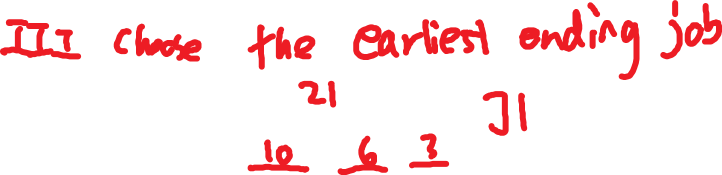 III choose the earliest ending job
21
J1
10 6 3